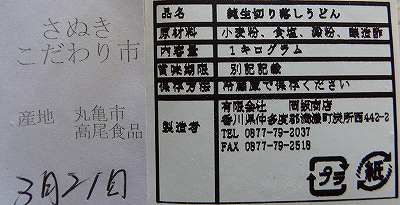 さぬき
こだわり市
産地 丸亀市
高尾食品
3月21日
品名 純生切り落しうどん
原材料 小麦粉、食塩、澱粉、醸造酢
内容量 1キログラム
賞味期限 別記記載
保存方法 冷蔵庫で保存ください
製造者
有限会社 岡坂商店
香川県仲多度郡満濃町炭所西442-2
TEL 0877-79-2037
FAX 0877-79-2518
プラ
紙